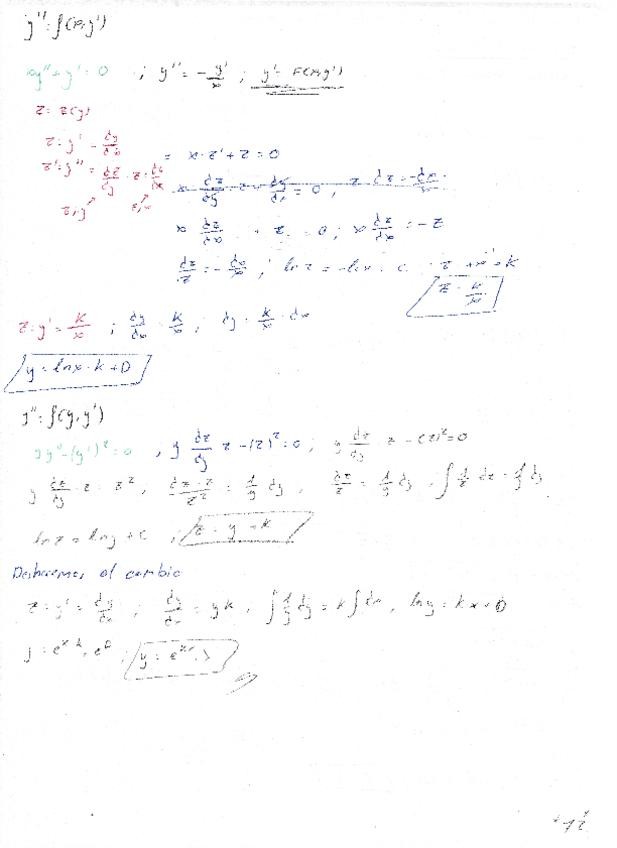 y'' = f(x, y')
xy'' + y' = 0 ; y'' = - y'/x ; y'' = F(x, y')
z = z(y)
z = y' = dy/dx
z' = y'' = dz/dy · z · = x · z' + z = 0
x dz/dx + z = 0 ; x dz/dx = -z
dz/z = - dx/x ; ln z = -ln x + c
z = K/x
z = y' = K/x ; dy/dx = K/x ; dy = K/x · dx
y = lnx · k + D
y'' = f(y, y')
yy'' - (y')² = 0 , y dz/dy z - (z)² = 0 ; y dz/dy · z - (z)² = 0
y dz/dy · z = z² ; dz · z/z² = 1/y dy , dz/z = 1/y dy , ∫ 1/z dz = ∫ 1/y dy
ln z = ln y + C ; z = y · K
Deshacemos el cambio
z = y' = dy/dx ; dy/dx = yk , ∫ 1/y dy = k ∫ dx , ln y = kx + D